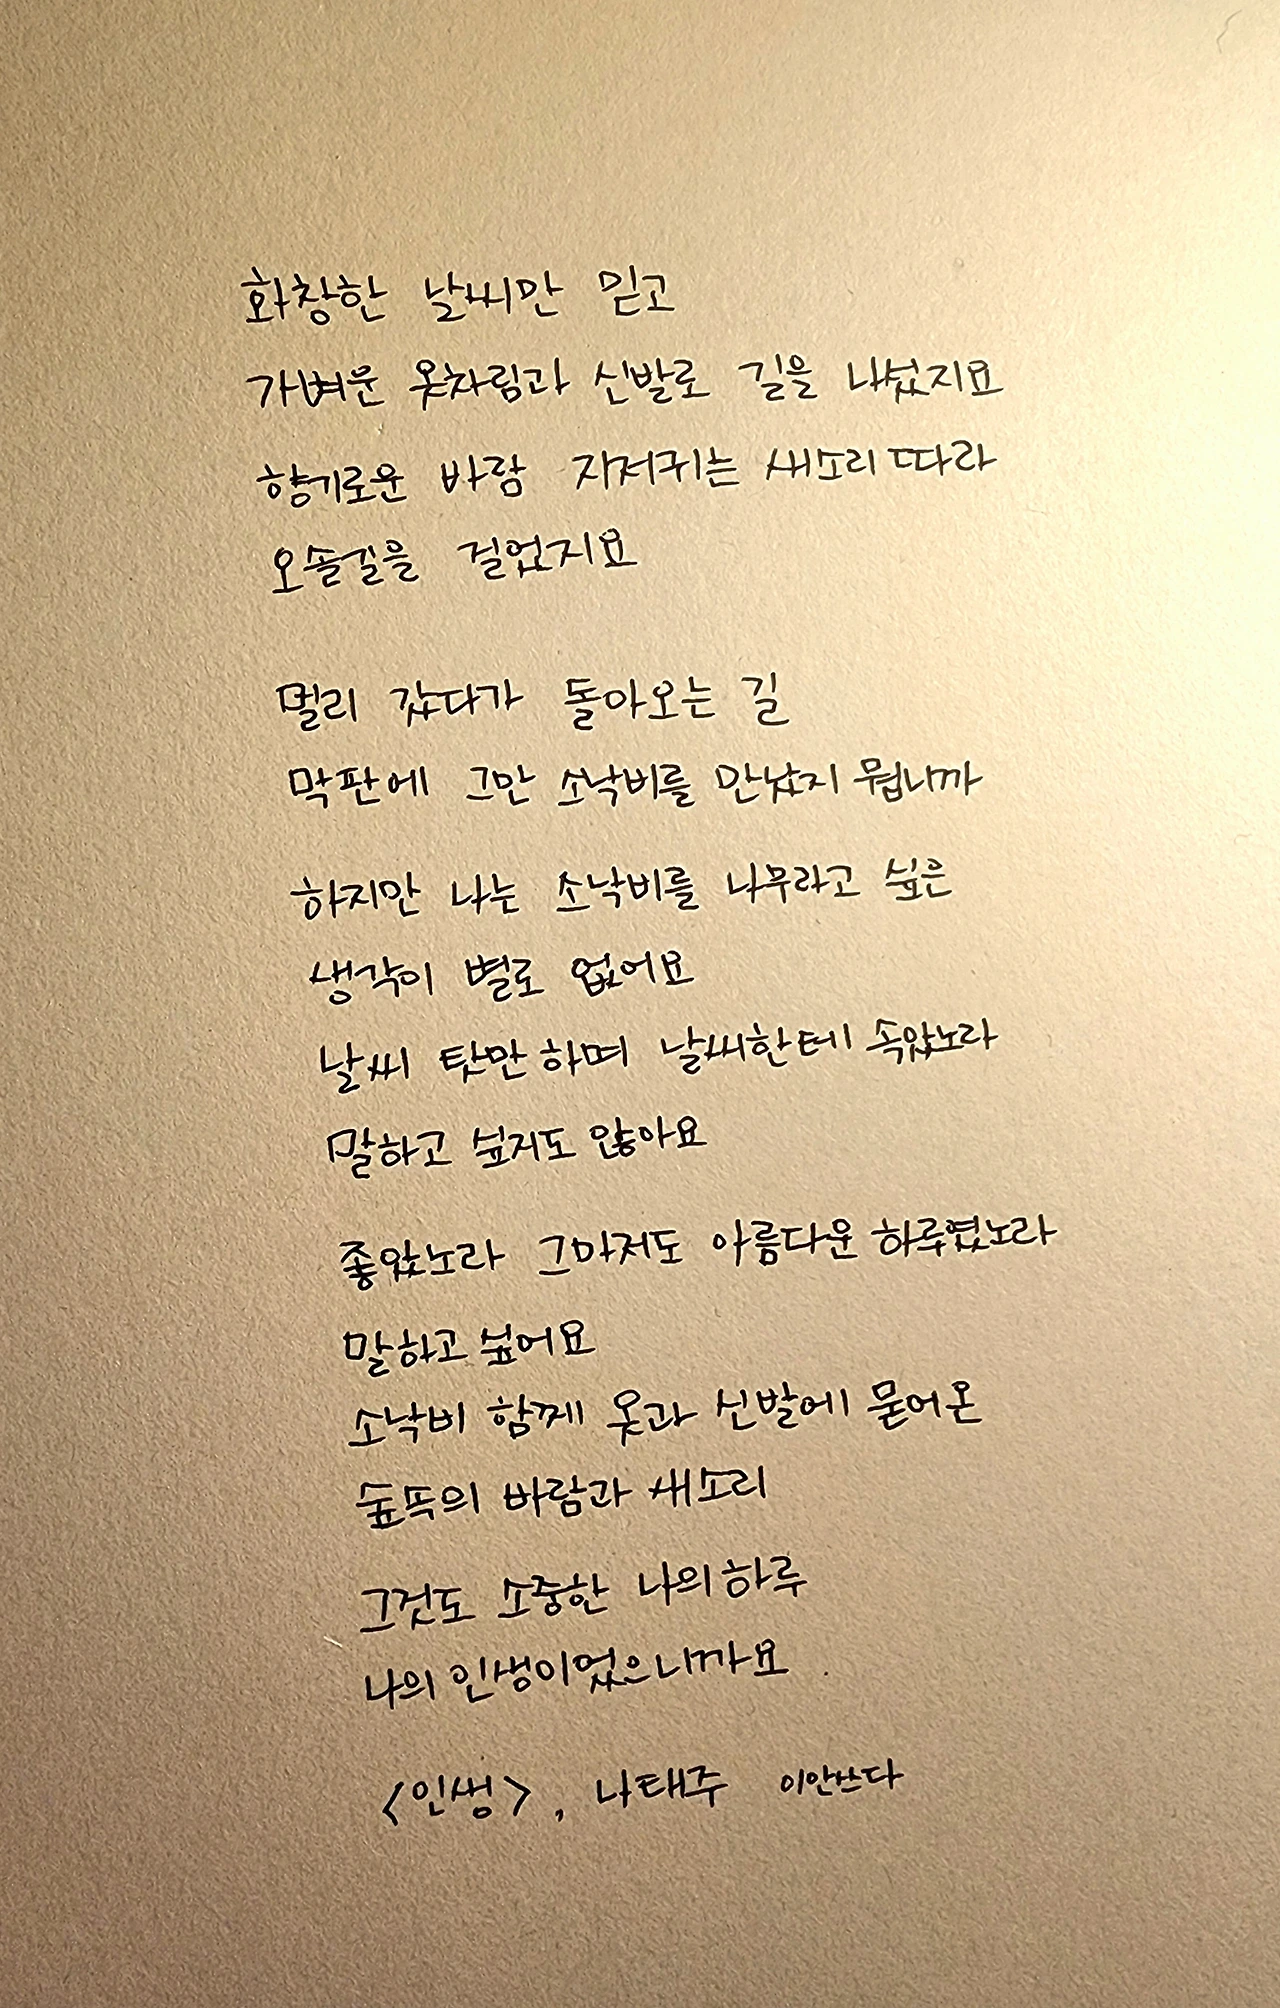 화창한 날씨만 믿고
가벼운 옷차림과 신발로 길을 나섰지요
향기로운 바람 지저귀는 새소리 따라
오솔길을 걸었지요
멀리 갔다가 돌아오는 길
막판에 그만 소낙비를 만났지 뭡니까
하지만 나는 소낙비를 나무라고 싶은
생각이 별로 없어요
날씨 탓만 하며 날씨한테 속았노라
말하고 싶지도 않아요
좋았노라 그마저도 아름다운 하루였노라
말하고 싶어요
소낙비 함께 옷과 신발에 묻어온
숲뚝의 바람과 새소리
그것도 소중한 나의 하루
나의 인생이었으니까요.
<인생>, 나태주 이안쓰다